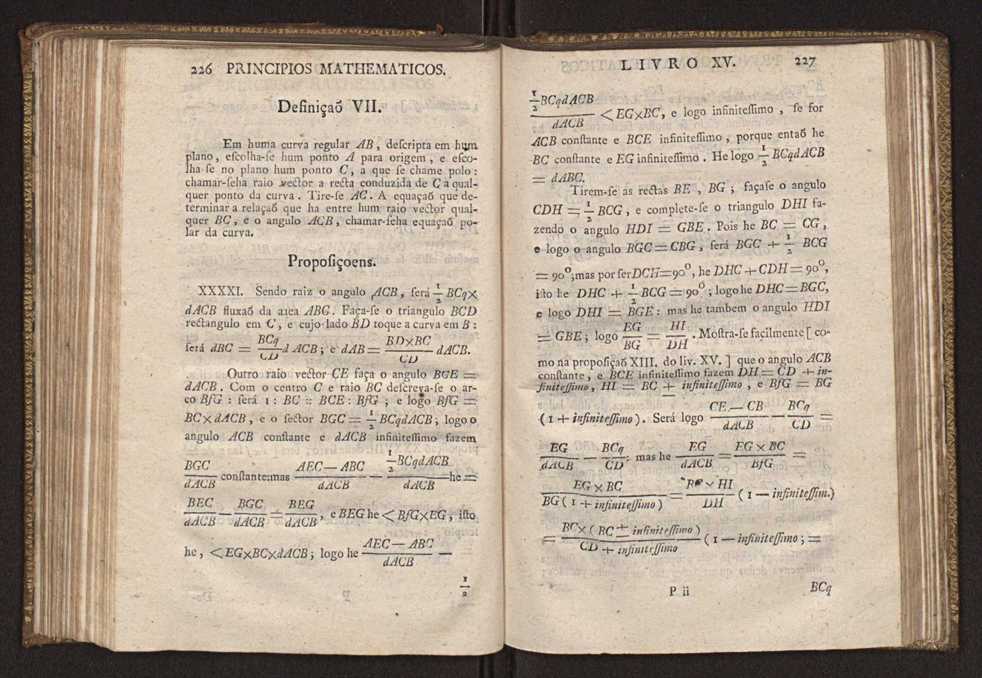 226 PRINCIPIOS MATHEMATICOS.
Definiçaõ VII.
Em huma curva regular AB, deſcripta em hum
plano, eſcolha-ſe hum ponto A para origem, e eſco-
lha ſe no plano hum ponto C, a que ſe chame polo:
chamar-ſeha raio vector a recta conduzida de C a qual-
quer ponto da curva. Tire-ſe AC. A equaçaõ que de-
terminar a relaçaõ que ha entre hum raio vector qual-
quer BC, e o angulo ACB, chamar-ſeha equaçaõ po-
lar da curva.
Propoſiçoens.
XXXXI. Sendo raiz o angulo ACB, ſerá 1/2 BCq×
dACB fluxaõ da area ABC. Faça-ſe o triangulo BCD
rectangulo em C, e cujo lado BD toque a curva em B:
ſerá dBC = BCq/CD d ACB; e dAB = BD×BC/CD dACB.
Outro raio vector CE faça o angulo BCE =
dACB. Com o centro C e raio BC deſcreva-ſe o ar-
co BfG: ſerá 1: BC :: BCE: BfG; e logo BfG =
BC×dACB, e o ſector BGC = 1/2 BCqdACB; logo o
angulo ACB conſtante e dACB infiniteſſimo fazem
BGC/dACB conſtante: mas AEC — ABC/dACB — 1/2 BCqdACB/dACB he =
BEC/dACB — BGC/dACB = BEG/dACB, e BEG he < BfG×EG, iſto
he, < EG×BC×dACB; logo he AEC — ABC/dACB —
1/2
LIVRO XV. 227
1/2 BCqdACB/dACB < EG×BC, e logo infiniteſſimo, ſe for
ACB conſtante e BCE infiniteſſimo, porque entaõ he
BC conſtante e EG infiniteſſimo. He logo 1/2 BCqdACB
= dABC.
Tirem-ſe as rectas BE, BG; façaſe o angulo
CDH = 1/2 BCG, e complete-ſe o triangulo DHI fa-
zendo o angulo HDI = GBE. Pois he BC = CG,
e logo o angulo BGC = CBG, ſerá BGC + 1/2 BCG
= 90°; mas por ſer DCH = 90°, he DHC + CDH = 90°,
iſto he DHC + 1/2 BCG = 90°; logo he DHC = BGC,
e logo DHI = BGE: mas he tambem o angulo HDI
= GBE; logo EG/BG = HI/DH. Moſtra-ſe facilmente [ co-
mo na propoſiçaõ XIII. do liv. XV. ] que o angulo ACB
conſtante, e BCE infiniteſſimo fazem DH = CD + in-
finiteſſimo, HI = BC ± infiniteſſimo, e BfG = BG
(1 + infiniteſſimo). Será logo CE — CB/dACB — BCq/CD =
EG/dACB — BCq/CD: mas he EG/dACB = EG × BC/BfG =
EG × BC/BG (1 + infiniteſſimo) = BC × HI/DH (1 — infiniteſſim.)
= BC× (BC ± infiniteſſimo)/CD + infiniteſſimo (1 — infiniteſſimo; =
P ii BCq